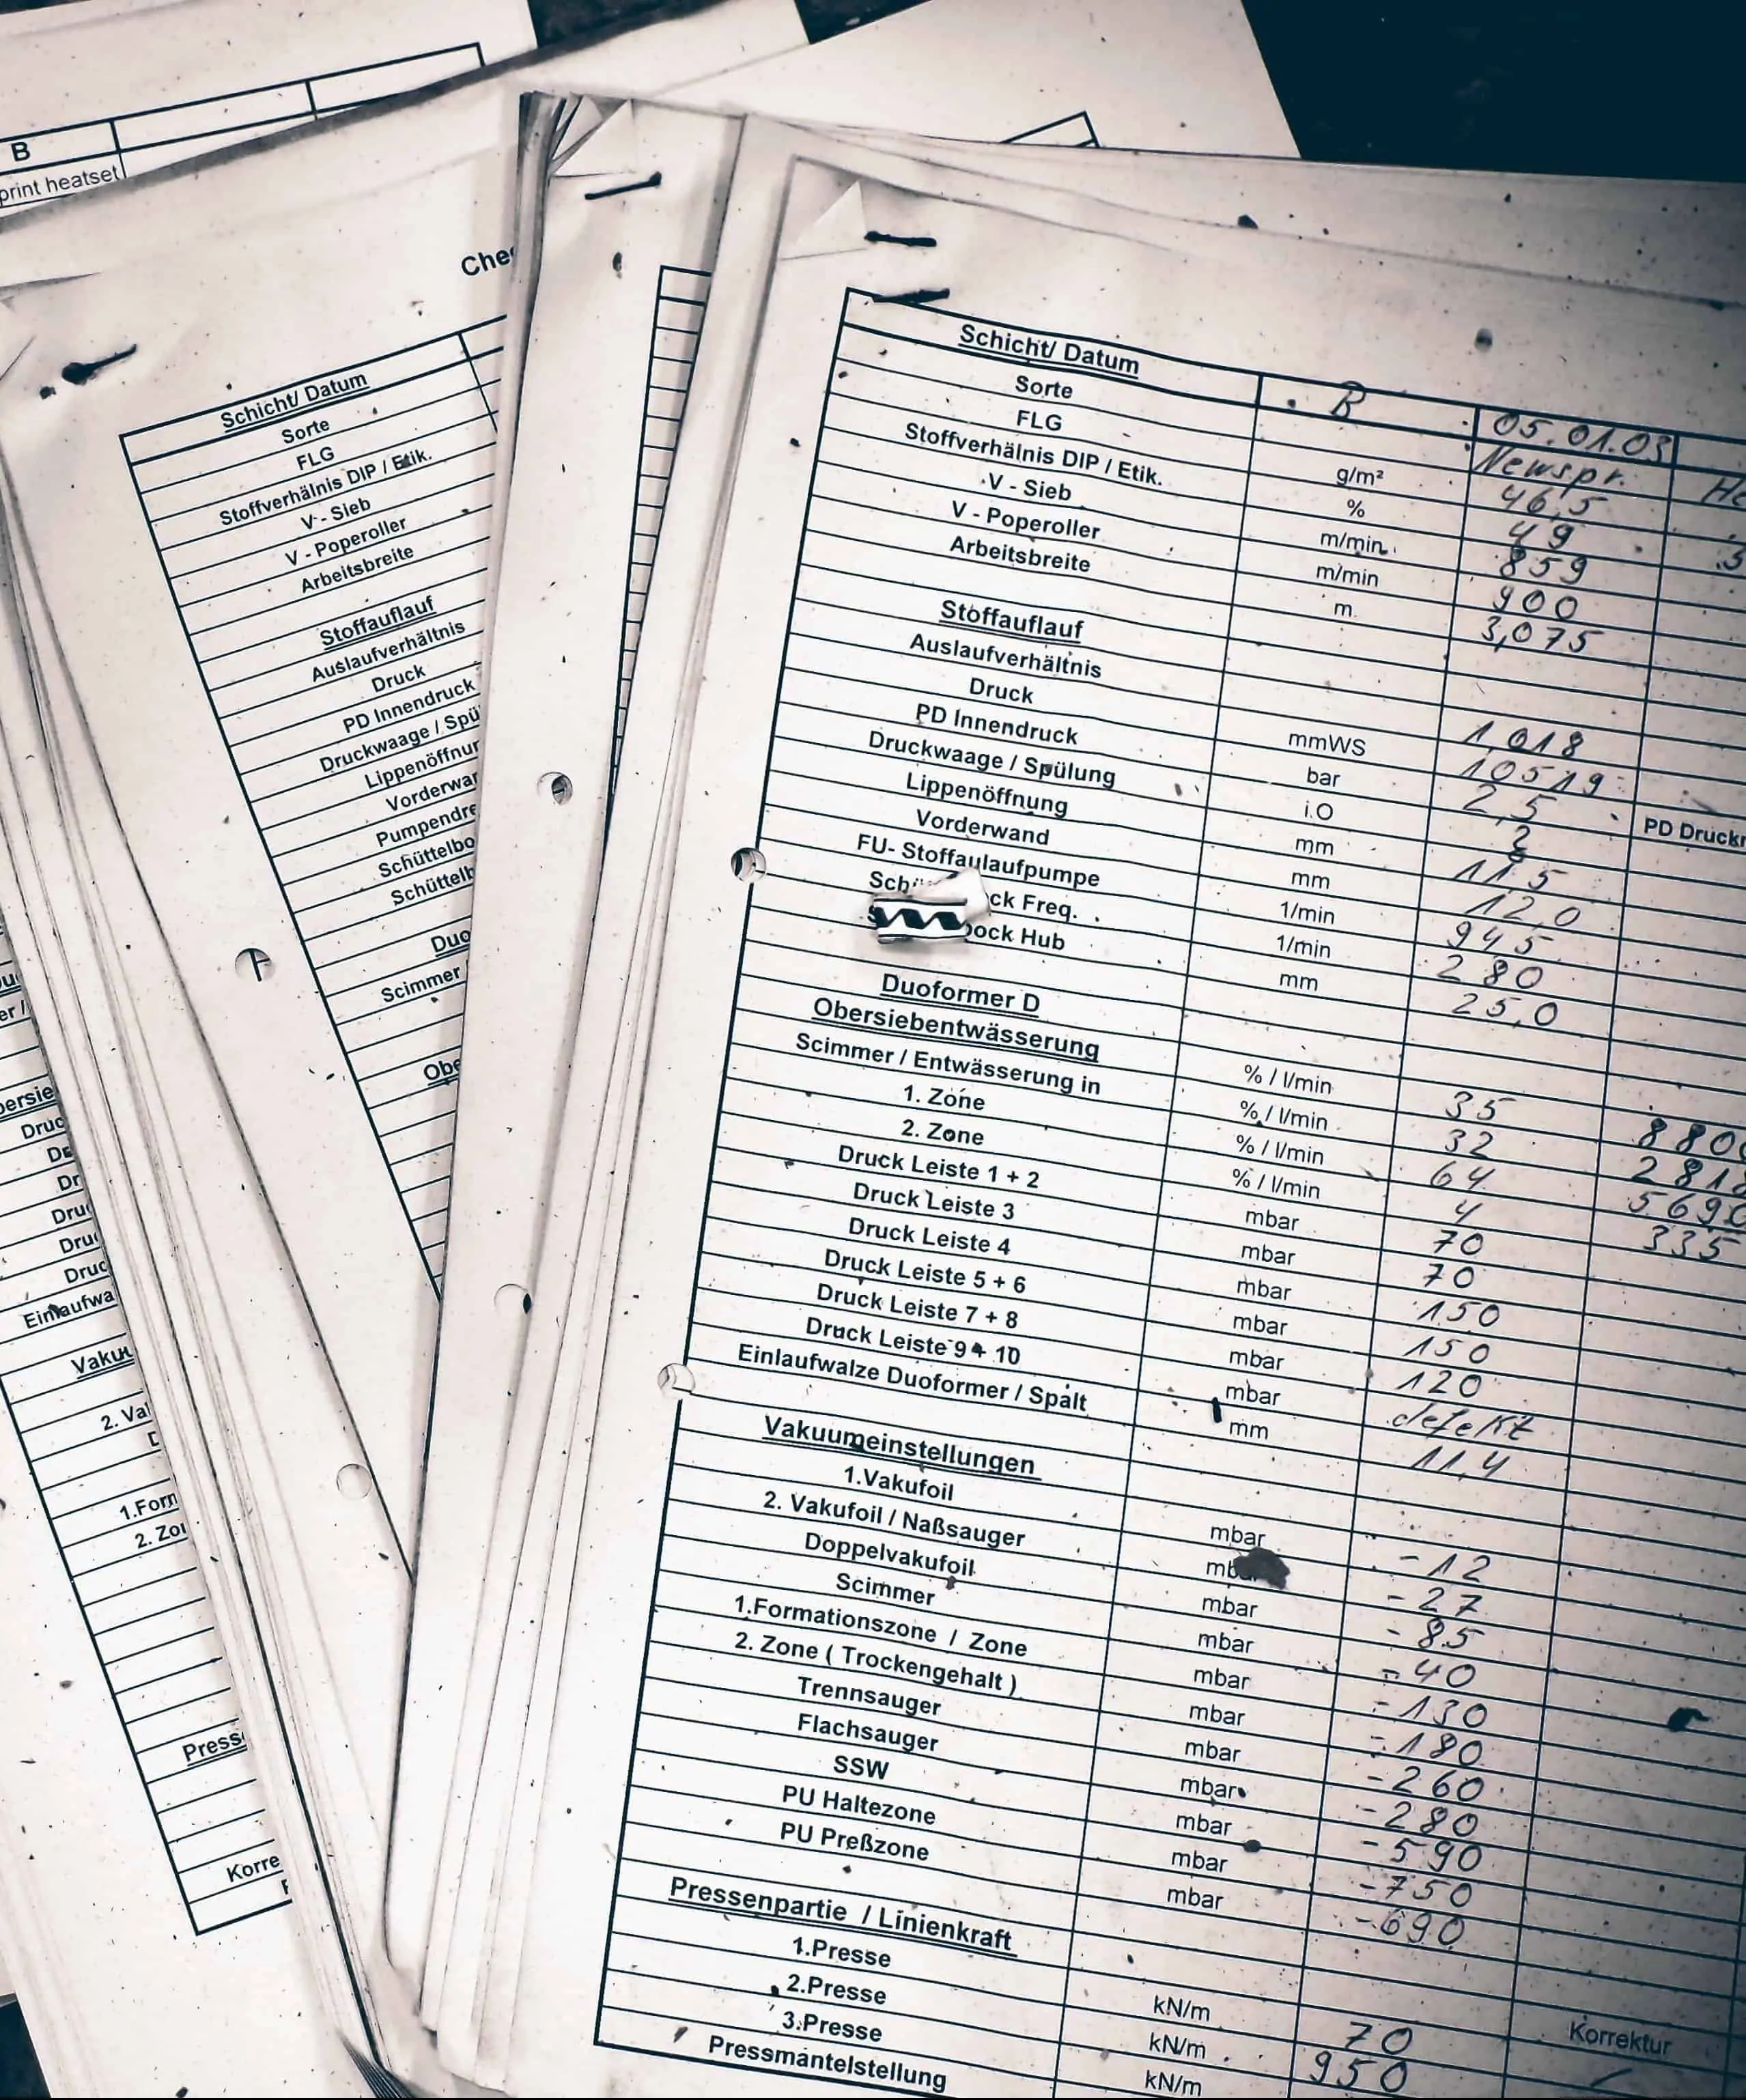 B
print heatset
Schicht/ Datum
Sorte
FLG
Stoffverhälnis DIP / Etik.
V - Sieb
V - Poperoller
Arbeitsbreite
Stoffauflauf
Auslaufverhältnis
Druck
PD Innendruck
Druckwaage / Spü
Lippenöffnun
Vorderwan
Pumpendre
Schüttelbo
Schüttelb
Duo
Scimmer
Obe
Druc
Dr
Dru
Dru
Druc
Einlaufwa
Vaku
2. Va
1.Form
2. Zo
Press
Korre
Schicht/ Datum B 05.01.03
Sorte Newspr.
FLG g/m² 46,5
Stoffverhälnis DIP / Etik. % 49
V - Sieb m/min 859
V - Poperoller m/min 900
Arbeitsbreite m 3,075
Stoffauflauf
Auslaufverhältnis 1,018
Druck mmWS 10519
PD Innendruck bar 2,5
Druckwaage / Spülung i.O 2 PD Druckr
Lippenöffnung mm 11,5
Vorderwand mm 12,0
FU- Stoffaulaufpumpe 1/min 945
Sch ck Freq. 1/min 280
ock Hub mm 25,0
Duoformer D
Obersiebentwässerung % / l/min 35 8800
Scimmer / Entwässerung in % / l/min 32 2818
1. Zone % / l/min 64 5690
2. Zone % / l/min 4 335
Druck Leiste 1 + 2 mbar 70
Druck Leiste 3 mbar 70
Druck Leiste 4 mbar 150
Druck Leiste 5 + 6 mbar 150
Druck Leiste 7 + 8 mbar 120
Druck Leiste 9 + 10 mbar defekt
Einlaufwalze Duoformer / Spalt mm 11,4
Vakuumeinstellungen
1.Vakufoil mbar - 12
2. Vakufoil / Naßsauger mbar - 27
Doppelvakufoil mbar - 85
Scimmer mbar - 40
1.Formationszone / Zone mbar - 130
2. Zone ( Trockengehalt ) mbar - 180
Trennsauger mbar - 260
Flachsauger mbar - 280
SSW mbar - 590
PU Haltezone mbar - 750
PU Preßzone mbar - 690
Pressenpartie / Linienkraft Korrektur
1.Presse kN/m 70
2.Presse kN/m 950
3.Presse kN/m
Pressmantelstellung